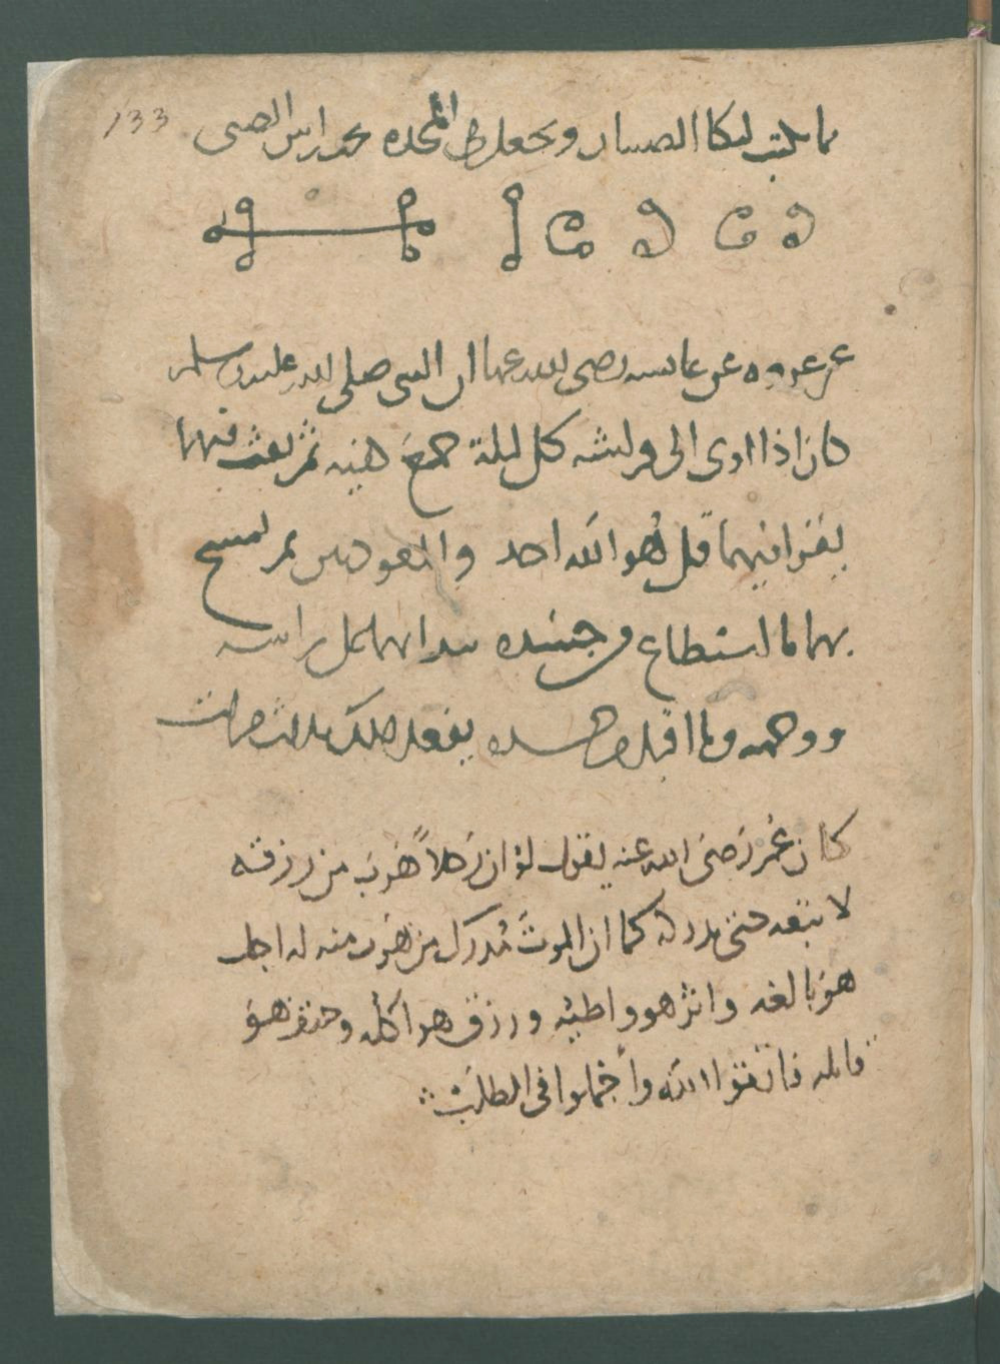 133
ما يكتب لبكا الصبيان ويجعل المخده تحت راس الصبي
عن عروه عن عايشه رضى الله عنها ان النبي صلى الله عليه وسلم
كان اذا اوى الى فراشه كل ليلة جمع كفيه ثم نفث فيهما
يقرا فيهما قل هو الله احد والمعوذتين ثم يمسح
بهما ما استطاع من جسده يبدا بهما على راسه
ووجهه وما اقبل من جسده يفعل ذلك ثلاث مرات
كان عمر رضى الله عنه يقول لو ان رجلاً هرب من رزقه
لاتبعه حتى يدركه كما ان الموت مدرك من هرب منه له اجل
هو بالغه واثر هو واطئه ورزق هو آكله وحتف هو
قاتله فاتقوا الله وأجملوا في الطلب